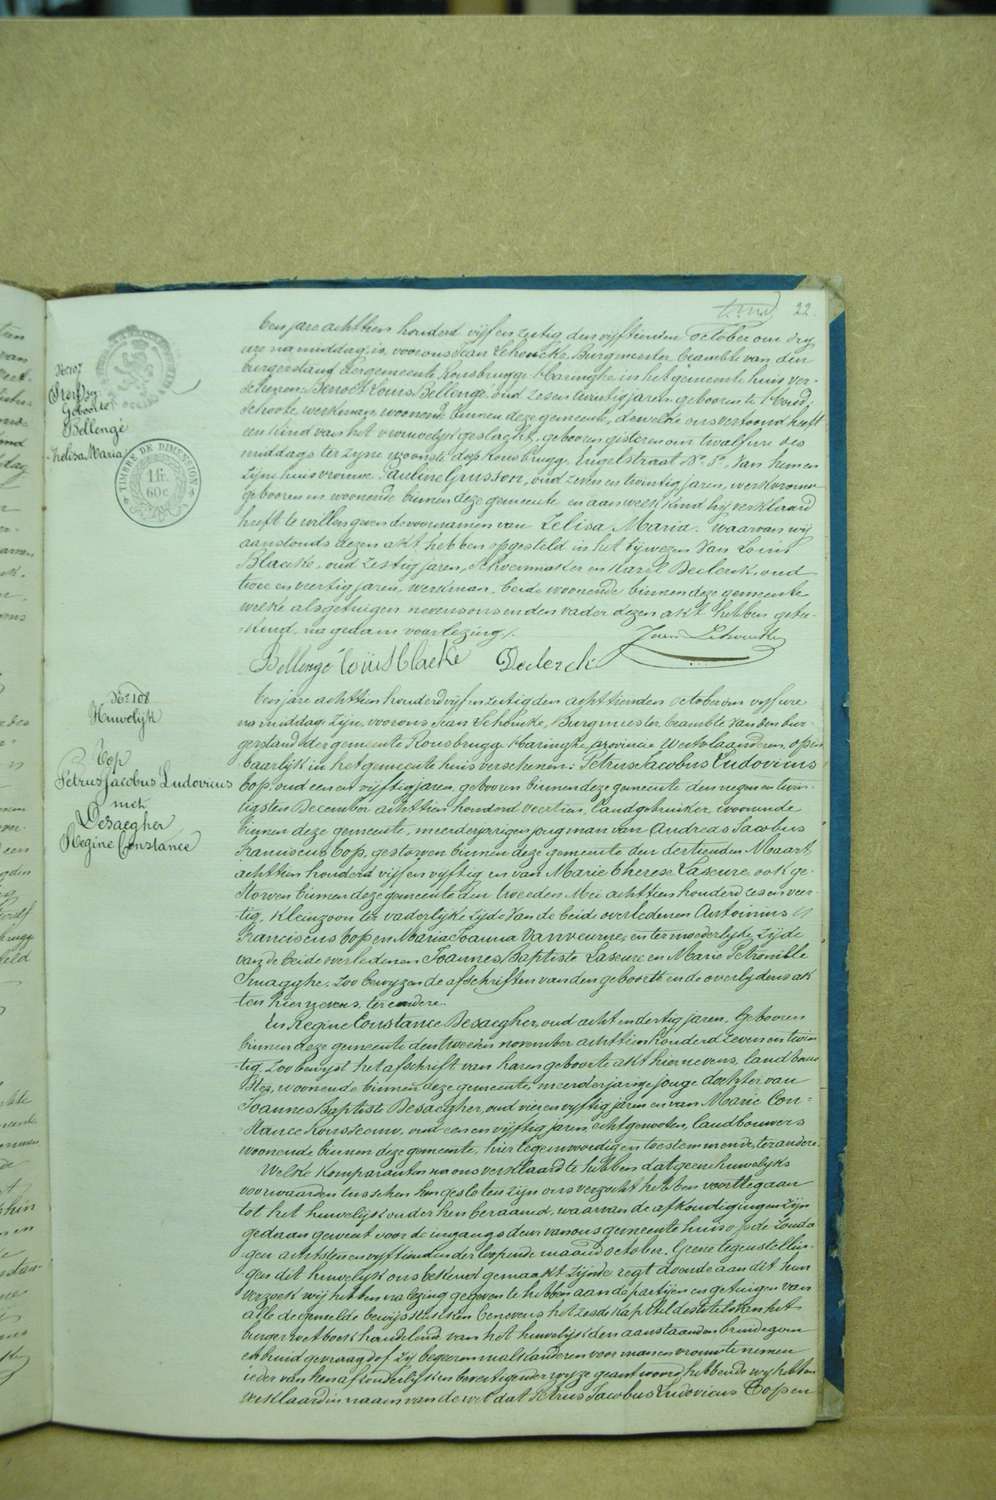 22.
No 107
Geboorte
Bellengé
Zelisa Maria
TIMBRE DE DIMENSION
1 fr.
60 c.
Een jare achttien honderd vijf en zestig den vijftienden October om dry
ure na middag, is, voor ons Jean Burgmeester beambte van den
burgerstand der gemeente Rousbrugge Haringhe in het gemeente huis ver-
schenen: Benoit Louis Bellengé, oud zes en twintig jaren, geboren te
werkman, woonende binnen deze gemeente, dewelke ons vertoond heeft
een kind van het vrouwelijk geslacht, geboren gisteren om twalf ure des
middags ter zyne woonste dorp Rousbrugg, Engelstraat No 8. van hem en
zyne huisvrouwe Pauline Grusson, oud zeven en twintig jaren, werkvrouw
gebooren en woonende binnen deze gemeente en aan welk kind hij verklaard
heeft te willen geven de voornamen van Zelisa Maria. Waarvan wij
aanstonds dezen akt hebben opgesteld in het bijwezen van Louis
Blaeke, oud zestig jaren, schoenmaker en Karel Declerck, oud
twee en veertig jaren, werkman, beide woonende binnen deze gemeente
welke als getuigen nevens ons en den vader dezen akt hebben getee-
kend, na gedaen voorlezing.
Bellengé Louis Blaeke Declerck
No 108
Huwelijk
Cop
Petrus Jacobus Ludovicus
met
Desaegher
Regine Constance
Een jare achttien honderd vijf en zestig den achttienden October om vijf ure
na middag, zijn, voor ons Jean Burgmeester beambte van den bur-
gerstand der gemeente Rousbrugge Haringhe provincie Westvlaanderen, open
baarlijk in het gemeente huis verschenen: Petrus Jacobus Ludovicus
Cop, oud een en vijftig jaren, geboren binnen deze gemeente den negen en twin-
tigsten December achttien honderd veertien, landgebruiker, woonende
binnen deze gemeente, meerderjarigen jongman van Andreas Jacobus
Franciscus Cop, gestorven binnen deze gemeente den dertienden Maart
achttien honderd vijf en vijftig en van Marie Therese Laseure ook ge-
storven binnen deze gemeente den tweeden Mei achttien honderd zes en veer-
tig, kleinzoon ter vaderlijke zijde van de beide overledenen Antoinius
Franciscus Cop en Maria Joanna Vanveurne, en ter moederlijke zijde
van de beide overledenen Joannes Baptiste Laseure en Marie Petronille
Smagghe. Zoo bewyzen de afschriften van den geboorte en de overlijdens ak
ten hiernevens, ter eendere.
En Regine Constance Desaegher, oud acht en dertig jaren, geboren
binnen deze gemeente den tweeden november achttien honderd zeven en twin
tig, zoo bewijst het afschrift van haren geboorte akt hiernevens, landbouw
ster, woonende binnen deze gemeente, meerderjarige jonge dochter van
Joannes Baptiste Desaegher, oud vier en vijftig jaren en van Marie Con-
stance oud een en vijftig jaren, echtgenooten, landbouwers
woonende binnen deze gemeente, hier tegenwoordig en toestemmende, ter andere.
Welke komparanten na ons verklaard te hebben dat geen huwelijks
voorwaarden tusschen hen gesloten zijn ons verzocht hebben voort te gaan
tot het huwelijk onder hen beraamd, waarvan de afkondigingen zijn
gedaan geweest voor de ingangs deur van ons gemeente huis op de zonda
gen achtsten en vijftienden der loopende maand october. Geene tegenstellin-
gen dit huwelijk ons bekend gemaakt zijnde, regt doende aan dit hun
verzoek wij hebben na lezing gegeven te hebben aan de partijen en getuigen van
alle de gemelde bewijsstukken benevens het zesde kapittel des titels van het
burger wetboek handelende van het huwelijk den aanstaanden bruidegom
en bruid gevraagd of zij begeeren malkanderen voor man en vrouw te nemen
ieder van hen afzonderlijk en bevestigender wyze geantwoord hebbende wij hebben
verklaard in naam van de wet dat Petrus Jacobus Ludovicus Cop en